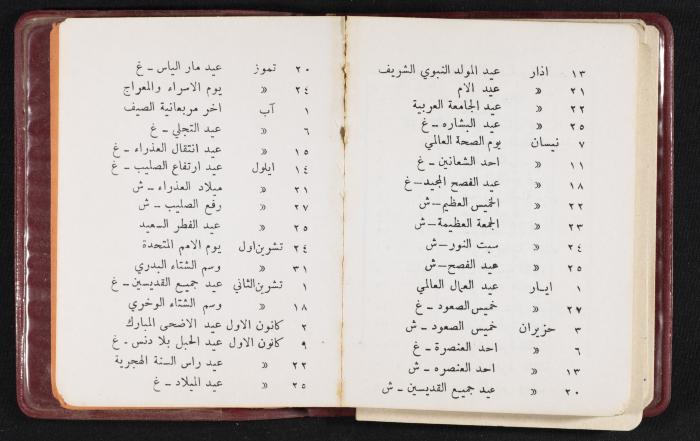 ١٣ اذار عيد المولد النبوي الشريف
٢١ » عيد الام
٢٢ » عيد الجامعة العربية
٢٥ » عيد البشاره ــ غ
٧ نيسان يوم الصحة العالمي
١١ » احد الشعانين ــ غ
١٨ » عيد الفصح المجيد ــ غ
٢٢ » الخميس العظيم ــ ش
٢٣ » الجمعة العظيمة ــ ش
٢٤ » سبت النور ــ ش
٢٥ » عيد الفصح ــ ش
١ ايـار عيد العمال العالمي
٢٧ » خميس الصعود ــ غ
٣ حزيران خميس الصعود ــ ش
٦ » احد العنصرة ــ غ
١٣ » احد العنصره ــ ش
٢٠ » عيد جميع القديسين ــ ش
٢٠ تموز عيد مار الياس ــ غ
٢٤ » يوم الاسراء والمعراج
١ آب اخر مربعانية الصيف
٦ » عيد التجلي ــ غ
١٥ » عيد انتقال العذراء ــ غ
١٤ ايلول عيد ارتفاع الصليب ــ غ
٢١ » ميلاد العذراء ــ ش
٢٧ » رفع الصليب ــ ش
٢٥ » عيد الفطر السعيد
٢٤ تشرين اول يوم الامم المتحدة
٣١ » وسم الشتاء البدري
١ تشرين الثاني عيد جميع القديسين ــ غ
١٨ » وسم الشتاء الوخري
٢ كانون الاول عيد الاضحى المبارك
٩ كانون الاول عيد الحبل بلا دنس ـ غ
٢٢ » عيد راس السنة الهجرية
٢٥ » عيد الميلاد ــ غ